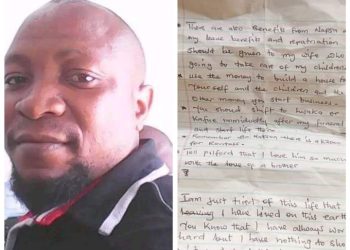 There are also Benefits from Napsa and
my leave benefits and repatriation
should be given to my wife who
going to take care of my children
use the money to build a house for
yourself and the children and the
other money you start business.
You should shift to Lusaka or
Kafue immidiately after my funeral
and start life there
Remember
for
Tell pilford that I love him so much
with the love of a brother
I am just tired of this life that
leaving I have loved on this earth
You know that I have always wor
hard but I have nothing to sho